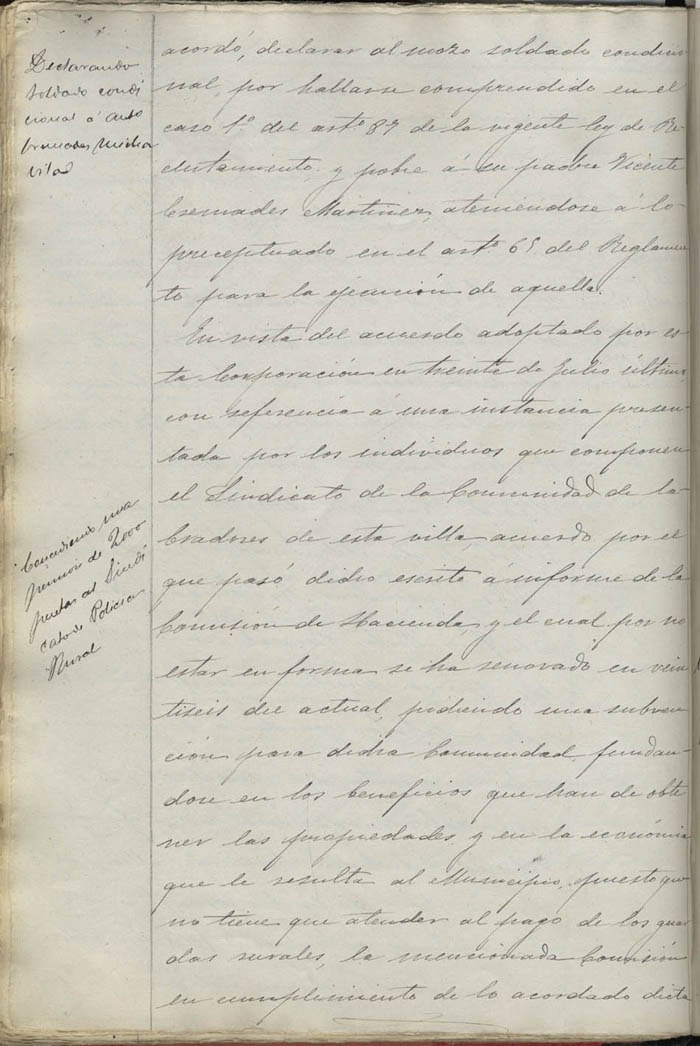 Declarando
soldado condi
cional á Anto
Mira
Vila
acordó, declarar al mozo soldado condicio
nal, por hallarse comprendido en el
caso 1º del artº 87 de la vigente ley de Re-
clutamiento, y pobre á su padre Vicente
Martinez, ateniendose á lo
preceptuado en el artº 65 del Reglamen
to para la ejecución de aquella.
En vista del acuerdo adoptado por es
ta Corporación en treinta de Julio último,
con referencia á una instancia presen-
tada por los individuos que componen
el Sindicato de la Comunidad de la-
bradores de esta villa, acuerdo por el
que pasó dicho escrito á informe de la
Comisión de Hacienda, y el cual por no
estar en forma se ha renovado en vein
tiseis del actual, pidiendo una subven
ción para dicha Comunidad, fundan-
dose en los beneficios que han de obte
ner las propiedades, y en la económia
que le resulta al Municipio, puesto que
no tiene que atender al pago de los guar
das rurales, la mencionada Comisión
en cumplimiento de lo acordado dicta
Concediendo una
de 2000
pesetas al Sindi
cato de Policia
Rural